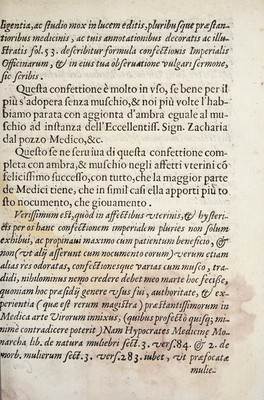 ligentia, ac studio mox in lucem editis, pluribusque præstan-
tioribus medicinis, ac tuis annotationibus decoratis ac illu-
stratis fol. 53. describitur formula confectionis Imperialis
Officinarum, & in eius tua obseruatione vulgari sermone,
sic scribis.
Questa confettione è molto in vso, se bene per il
più s'adopera senza muschio, & noi più volte l'hab-
biamo parata con aggionta d'ambra eguale al mu-
schio ad instanza dell'Eccellentiss. Sign. Zacharia
dal pozzo Medico, &c.
Questo se ne seruiua di questa confettione com-
pleta con ambra, & muschio negli affetti vterini cō
felicissimo successo, con tutto, che la maggior parte
de Medici tiene, che in simil casi ella apporti più to
sto nocumento, che giouamento.
Verissimum est, quòd in affectibus vterinis, & hysteri-
cis per os hanc confectionem imperialem pluries non solum
exhibui, ac propinaui maximo cum patientum beneficio, &
non (vt alij asserunt cum nocumento eorum) verum etiam
altas res odoratas, confectionesque varias cum musco, tra-
didi, nihilominus nemo credere debet meo marte hoc fecisse,
quoniam hoc præsidij genere vsus sui, authoritate, & ex-
perientia (quæ est rerum magistra) præstantissimorum in
Medica arte Virorum innixus, (quibus profectò quisq; mi-
nimè contradicere poterit) Nam Hypocrates Medicinæ Mo-
narcha lib. de natura muliebri sect. 3. vers. 84. & 2. de
morb. mulierum sect. 3. vers. 283. iubet, vt præfocatæ
mulie-